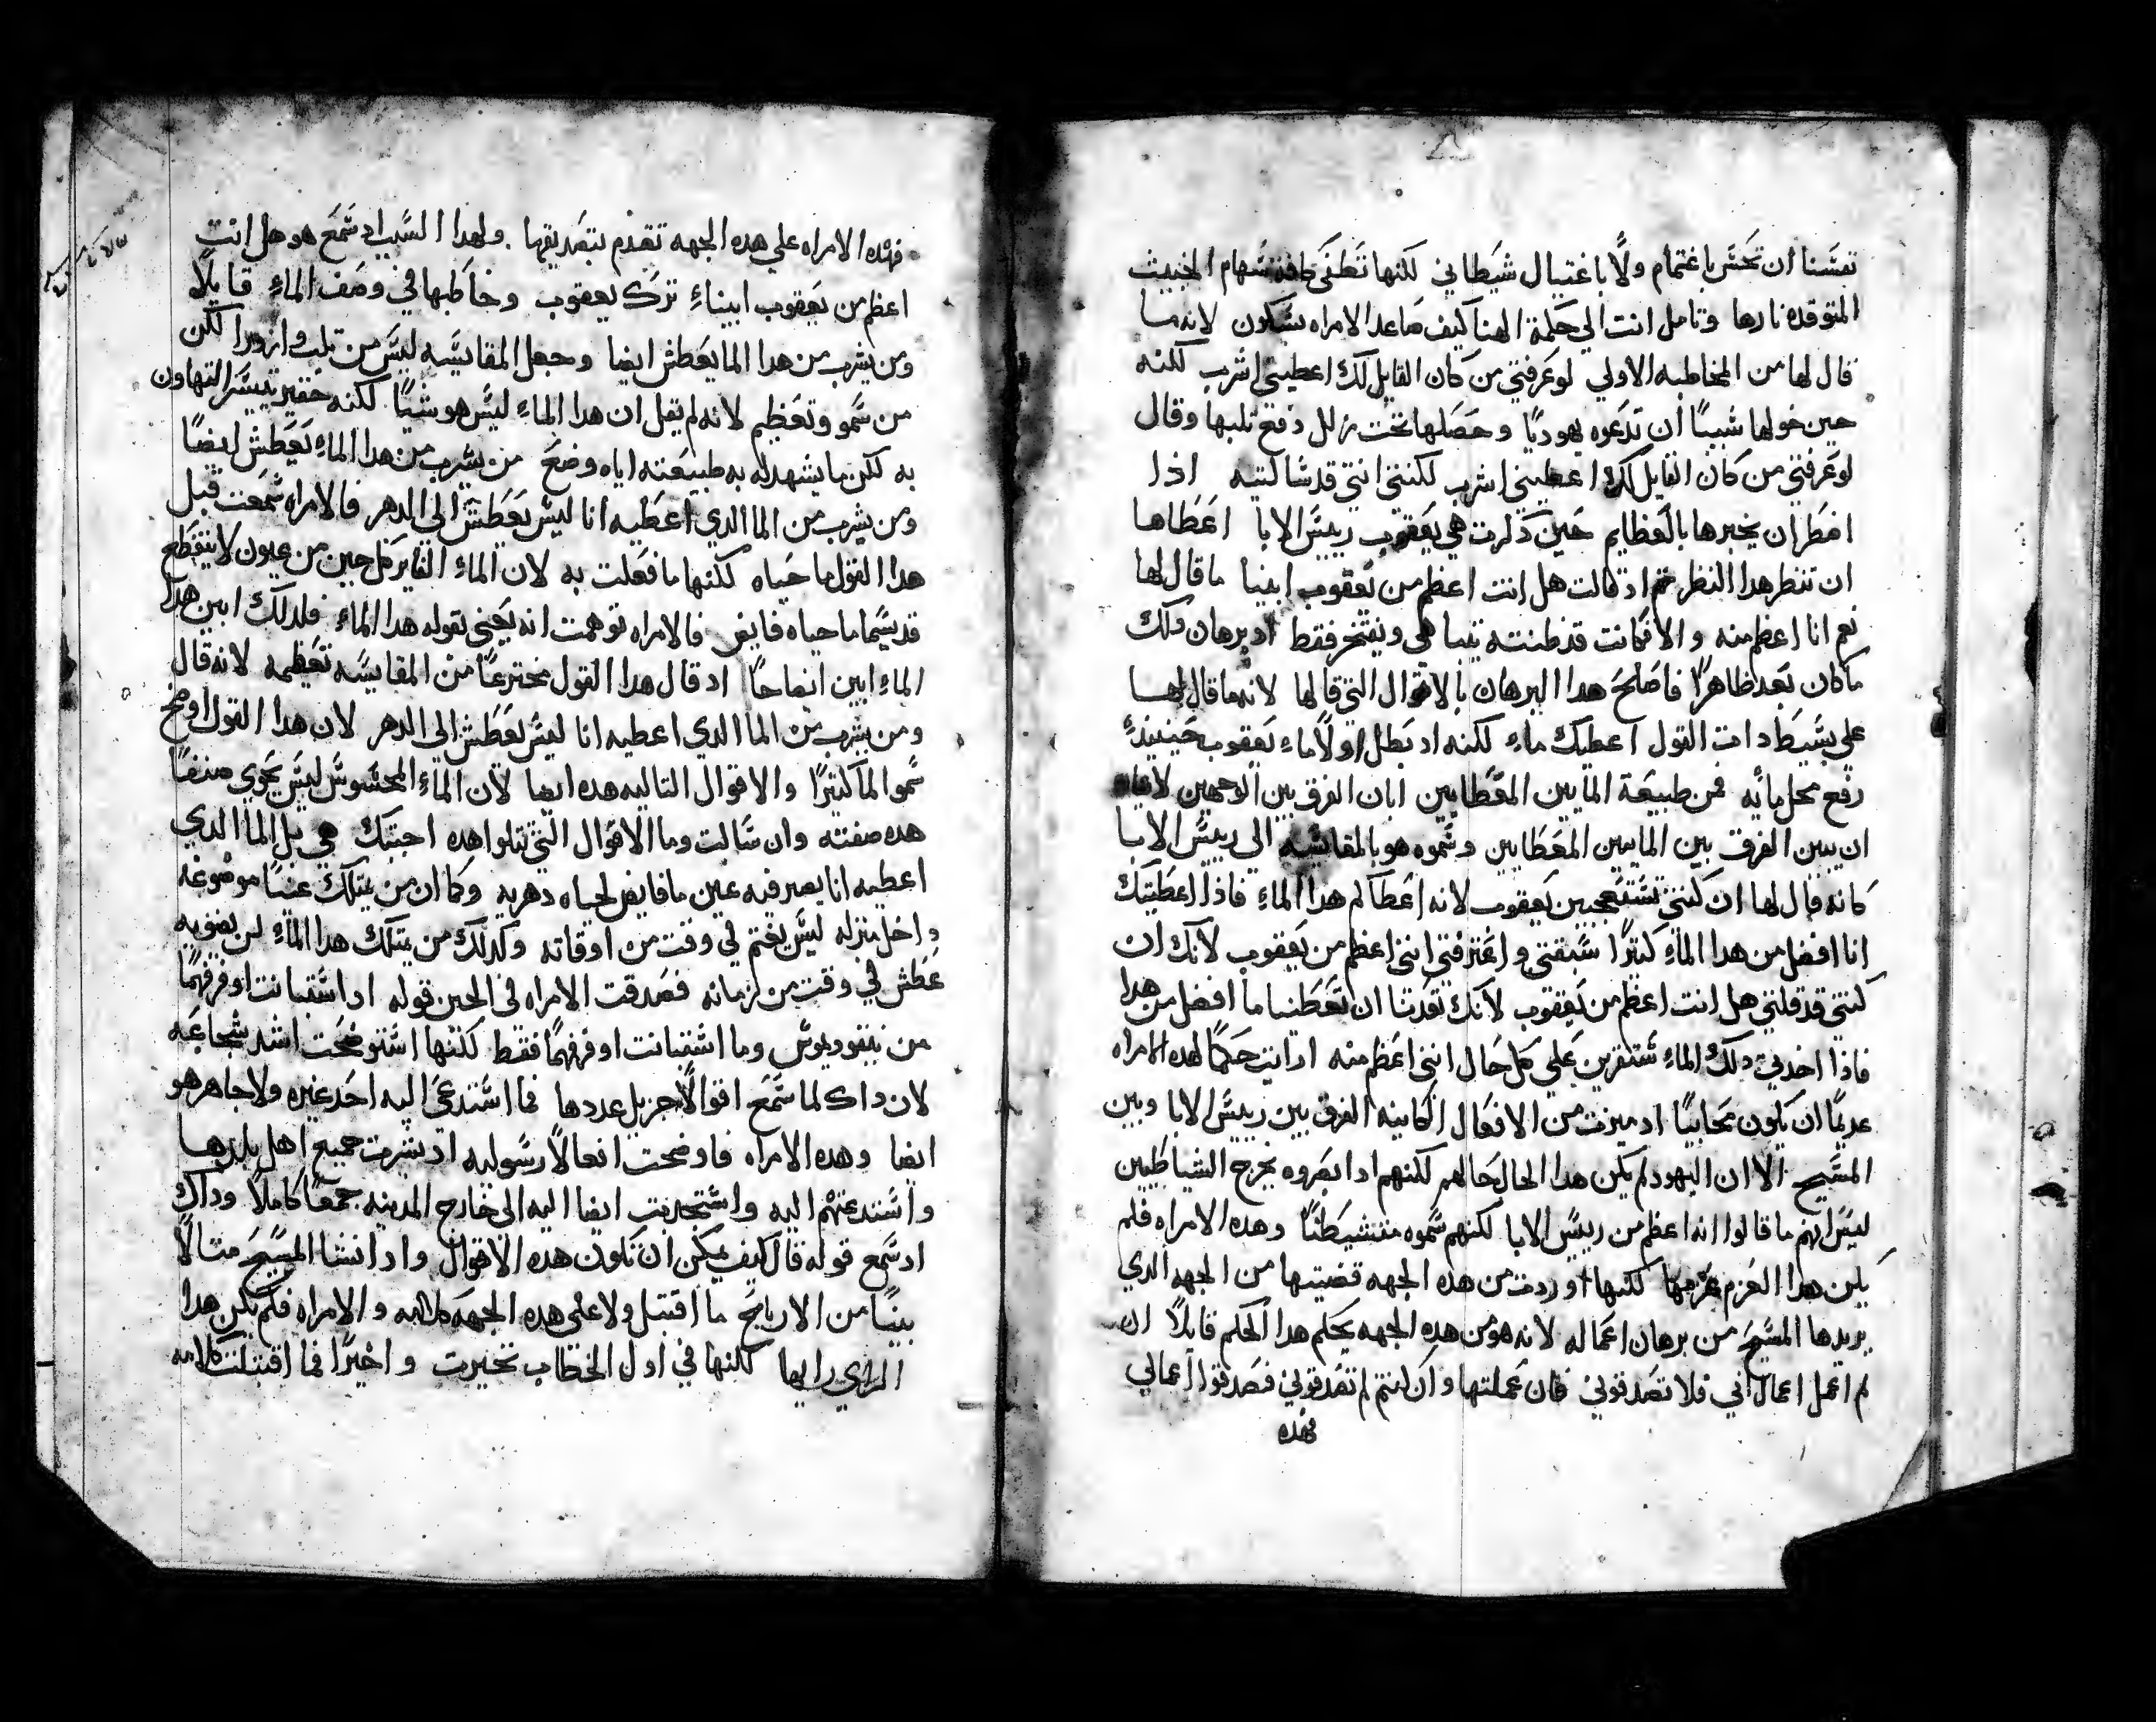 نفسنا ان تحس باغتمام ولا باغتيال شيطاني لكنها تطفي كافة سهام الخبيث
المتوقده نارها وتامل انت الي حكمة الهنا كيف صاعد الامراه بسكون لانه ما
قال لها من المخاطبه الاولي لو عرفتي من كان القايل لك اعطيني اشرب لكنه
حين خولها سببًا ان تدعوه يهوديًا وحصلها تحت زلل دفع ثلبها وقال
لو عرفتي من كان القايل لك اعطيني اشرب لكنتي انتي قد سالتيه اذا
اضطر ان يخبرها بالعظايم حين ذكرت هي يعقوب رييس الابا اعطاها
ان تنظر هدا النظر ثم اد قالت هل انت اعظم من يعقوب ابينا ما قال لها
نعم انا اعظم منه والا فكانت قد ظنته يتباهي ويفتخر فقط اد برهان دلك
ما كان بعد ظاهرًا فاصلح هدا البرهان بالاقوال التي قالها لانه ما قال لها
علي بسيط دات القول اعطيك ماء لكنه اد بطل اولاً ماء يعقوب حينيدٍ
رفع محل مايه فمن طبيعة المايين المعطايين ابان الفرق بين الوجهين لا
ان يبين الفرق بين المايين المعطايين وسموه هو بالمقايسه الي رييس الابا
كانه قال لها ان كنتي تستعجبين يعقوب لانه اعطاكم هدا الماء فاذا اعطيتك
انا افضل من هدا الماء كثيرًا سبقتي واعترفتي انني اعظم من يعقوب لانك ان
كنتي قد قلتي هل انت اعظم من يعقوب لانك تقدتنا ان تعطنا ما افضل من هدا
فاذا اخدتي دلك الماء ستقرين علي كل حال انني اعظم منه ارايت حكمًا لهده الامراه
عديمًا ان يكون محابيًا اد ميزت من الافعال الكاينه الفرق بين رييس الابا وبين
المسيح الا ان اليهود لم يكن هدا الحال حالهم لكنهم اد ابصروه يخرج الشياطين
ليس انهم ما قالوا انه اعظم من رييس الابا لكنهم سموه متشيطنًا وهده الامراه فلم
يكن هدا العزم عزمها لكنها اوردت من هده الجهه قضيتها من الجهه الدي
يريدها المسيح من برهان اعماله لانه هو من هده الجهه يحكم هدا الحكم قايلاً ان
لم اعمل اعمال ابي فلا تصدقوني فان عملتها وان كنتم لم تصدقوني فصدقوا اعمالي
فهده
فهده الامراه علي هده الجهه تقدم بتصديقها . ولهدا السبب اد سمع هو هل انت
اعظم من يعقوب ابيناءِ ترك يعقوب وخاطبها في وصف الماءِ قايلاً
ومن يشرب من هدا الما يعطش ايضا وجعل المقايسه ليس من ثلب وازورا لكن
من سمو وتعظيم لانه لم يقل ان هدا الماءِ ليس هو شيًا لكنه حقير تيسر التهاون
به لكن ما يشهد له به طبيعته اياه وضع من يشرب من هدا الماءِ يعطش ايضًا
ومن يشرب من الما الدي اعطيه انا ليس يعطش الي الدهر فالامراه سمعت قبل
هدا القول ما حياه لكنها ما فعلت به لان الماءِ الفاير كل حين من عيون لا ينقطع
قد يسما ما حياه فايض فالامراه توهمت انه يعني بقوله هدا الماءِ فلدلك ابين هدا
الماءِ ابين ايضاحًا اد قال هدا القول مخترعًا من المقايسه تعظيمه لانه قال
ومن يشرب من الما الدي اعطيه انا ليس يعطش الي الدهر لان هدا القول اوضح
سمو الما كثيرًا والاقوال التاليه هده ايضا لان الماءِ المحسوس ليس يحوي صنفًا
هده صفته وان سالت وما الاقوال التي تتلوا هده اجبتك هي بل الما الدي
اعطيه انا يصير فيه عين ما فايض لحياه دهريه وكما ان من يمتلك عينًا موضوعه
داخل منزله ليس يغتم في وقت من اوقاته وكدلك من يمتلك هدا الماءِ لن يصيبه
عطش في وقت من زمانه فصدقت الامراه في الحين قوله اد استبانت اوفر فهمًا
من نيقوديموس وما استبانت اوفر فهمًا فقط لكنها استوضحت اشد شجاعه
لان داك لما سمع اقوالاً جزيل عددها فما استدعي اليه احد غيره ولا جاهر هو
ايضا وهده الامراه فاوضحت افعالاً رسوليه اد بشرت جميع اهل بلدها
واستدعتهم اليه واستجدبت ايضا اليه الي خارج المدينه جمعًا كاملاً وداك
اد سمع قوله قال كيف يمكن ان تكون هده الاقوال واد انشا المسيح مثالاً
بينًا من الارياح ما اقتبل ولا علي هده الجهه كلامه والامراه فلم يكن هدا
الراي رايها لكنها في اول الخطاب تحيرت واخيرًا فما اقتبلت كلامه